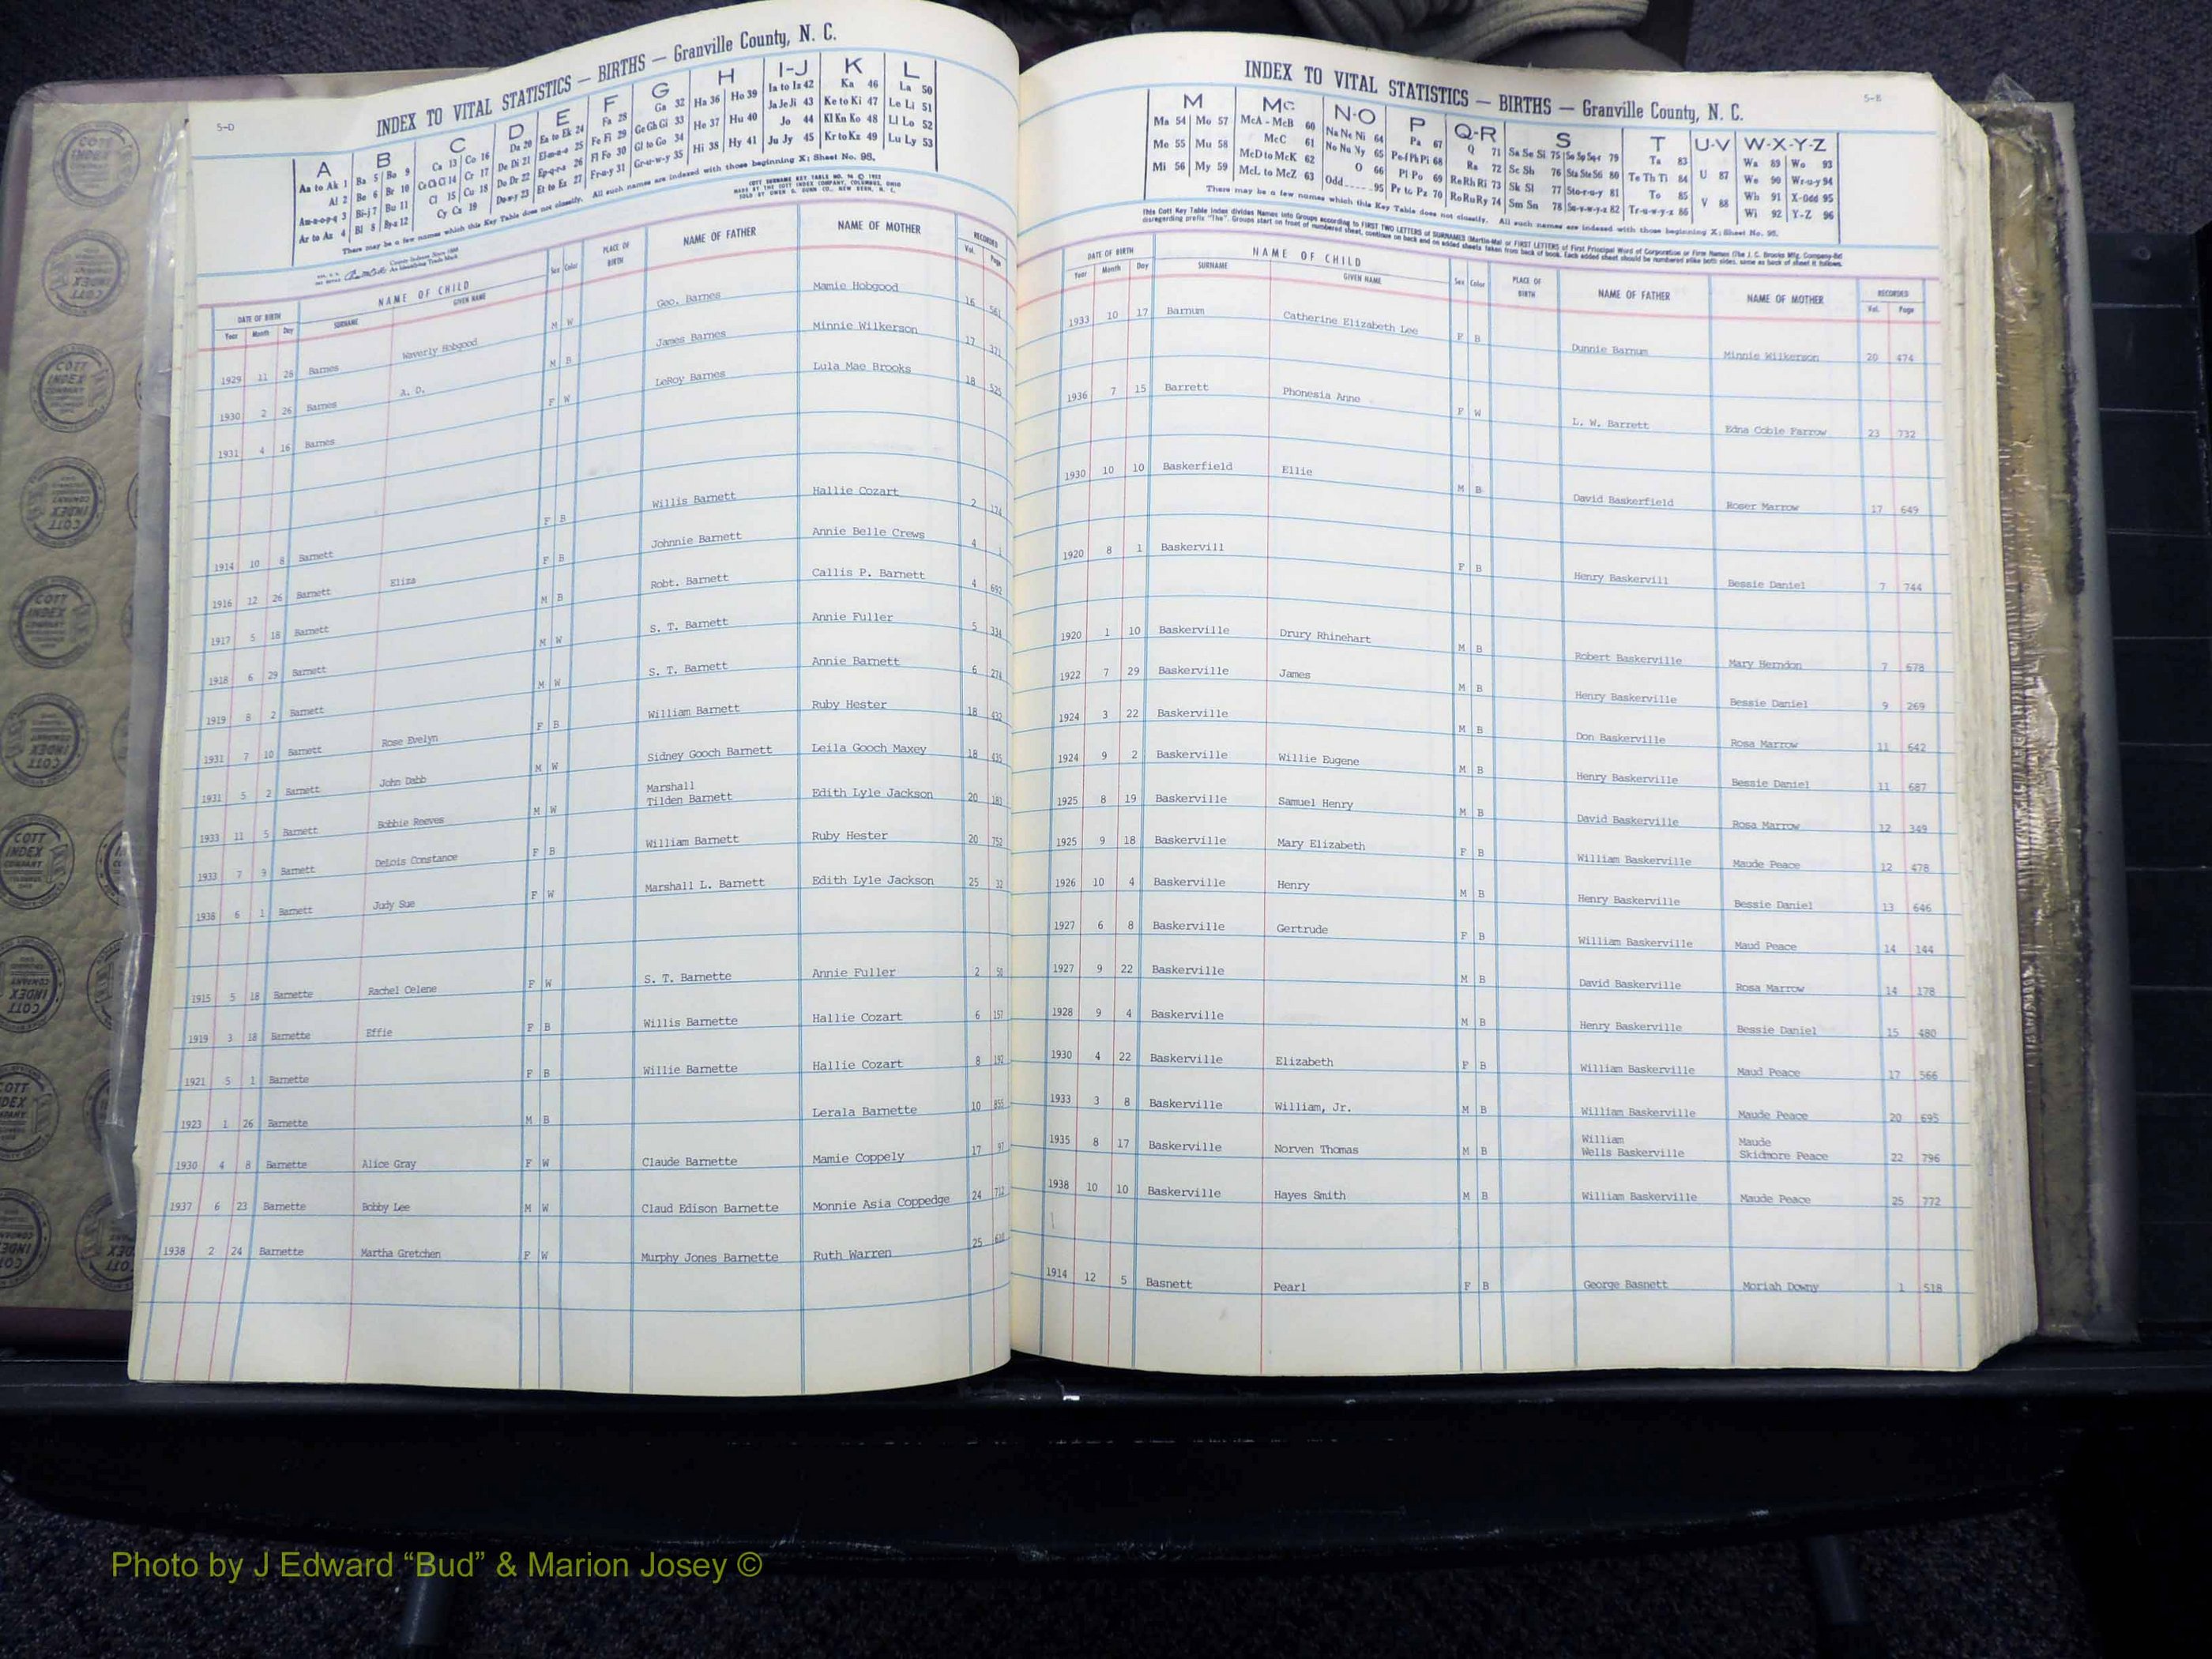 5-D
INDEX TO VITAL STATISTICS — BIRTHS — Granville County, N. C.
A B C D E F G H I-J K L
Aa to Ak 1 Ba 5 Bo 9 Ca 13 Co 16 Da 20 Ea to Ek 24 Fa 28 Ga 32 Ha 36 Ho 39 Ia to Iz 42 Ka 46 La 50
Al 2 Be 6 Br 10 Ce Ch Ci 14 Cr 17 De Di 21 El-m-n-o 25 Fe Fi 29 Ge Gh Gi 33 He 37 Hu 40 Ja Je Ji 43 Ke to Ki 47 Le Li 51
Am-n-o-p-q 3 Bi-j 7 Bu 11 Cl 15 Cu 18 Do Dr 22 Ep-q-r-s 26 Fl Fo 30 Gl to Go 34 Hi 38 Hy 41 Jo 44 Kl Kn Ko 48 Ll Lo 52
Ar to Az 4 Bl 8 By-z 12 Cy Cz 19 Du-w-y 23 Et to Ez 27 Fr-u-y 31 Gr-u-w-y 35 Ju Jy 45 Kr to Kz 49 Lu Ly 53
There may be a few names which this Key Table does not classify. All such names are indexed with those beginning X; Sheet No. 98.
DATE OF BIRTH NAME OF CHILD Sex Color PLACE OF BIRTH NAME OF FATHER NAME OF MOTHER RECORDED
Year Month Day SURNAME GIVEN NAME Vol. Page
1929 11 28 Barnes Waverly Hobgood M W Geo. Barnes Mamie Hobgood 16 561
1930 2 26 Barnes A. D. M B James Barnes Minnie Wilkerson 17 371
1931 4 16 Barnes F W LeRoy Barnes Lula Mae Brooks 18 525
1914 10 8 Barnett F B Willis Barnett Hallie Cozart 2 174
1916 12 26 Barnett Eliza F B Johnnie Barnett Annie Belle Crews 4 1
1917 5 18 Barnett M B Robt. Barnett Callis P. Barnett 4 692
1918 6 29 Barnett M W S. T. Barnett Annie Fuller 5 334
1919 8 2 Barnett M W S. T. Barnett Annie Barnett 6 274
1931 7 10 Barnett Rose Evelyn F B William Barnett Ruby Hester 18 432
1931 5 2 Barnett John Dabb M W Sidney Gooch Barnett Leila Gooch Maxey 18 435
1933 11 5 Barnett Bobbie Reeves M W Marshall
Tilden Barnett Edith Lyle Jackson 20 181
1933 7 3 Barnett DeLois Constance F B William Barnett Ruby Hester 20 752
1938 6 1 Barnett Judy Sue F W Marshall L. Barnett Edith Lyle Jackson 25 32
1915 5 18 Barnette Rachel Celene F W S. T. Barnette Annie Fuller 2 50
1919 3 18 Barnette Effie F B Willis Barnette Hallie Cozart 6 157
1921 5 1 Barnette F B Willie Barnette Hallie Cozart 8 192
1923 1 26 Barnette M B Lerala Barnette 10 855
1930 4 8 Barnette Alice Gray F W Claude Barnette Mamie Coppely 17 97
1937 6 23 Barnette Bobby Lee M W Claud Edison Barnette Monnie Asia Coppedge 24 712
1938 2 24 Barnette Martha Gretchen F W Murphy Jones Barnette Ruth Warren 25
5-E
INDEX TO VITAL STATISTICS — BIRTHS — Granville County, N. C.
M Mc N-O P Q-R S T U-V W-X-Y-Z
Ma 54 Mo 57 McA - McB 60 Na Ne Ni 64 Pa 67 Q 71 Sa Se Si 75 So Sp Sq-r 79 Ta 83 U 87 Wa 89 Wo 93
Me 55 Mu 58 McC 61 No Nu Ny 65 Pe-f Ph Pi 68 Ra 72 Sc Sh 76 Sta Ste Sti 80 Te Th Ti 84 V 88 We 90 Wr-u-y 94
Mi 56 My 59 McD to McK 62 O 66 Pl Po 69 Re Rh Ri 73 Sk Sl 77 Sto-r-u-y 81 To 85 Wh 91 X-Odd 95
McL to McZ 63 Odd 95 Pr to Pz 70 Ro Ru Ry 74 Sm Sn 78 Su-v-w-y-z 82 Tr-u-w-y-z 86 Wi 92 Y-Z 96
There may be a few names which this Key Table does not classify. All such names are indexed with those beginning X; Sheet No. 98.
DATE OF BIRTH NAME OF CHILD Sex Color PLACE OF BIRTH NAME OF FATHER NAME OF MOTHER RECORDED
Year Month Day SURNAME GIVEN NAME Vol. Page
1933 10 17 Barnum Catherine Elizabeth Lee F B Dunnie Barnum Minnie Wilkerson 20 474
1936 7 15 Barrett Phonesia Anne F W L. W. Barrett Edna Coble Farrow 23 732
1930 10 10 Baskerfield Ellie M B David Baskerfield Roser Marrow 17 649
1920 8 1 Baskervill F B Henry Baskervill Bessie Daniel 7 744
1920 1 10 Baskerville Drury Rhinehart M B Robert Baskerville Mary Herndon 7 678
1922 7 29 Baskerville James M B Henry Baskerville Bessie Daniel 9 269
1924 3 22 Baskerville M B Don Baskerville Rosa Marrow 11 642
1924 9 2 Baskerville Willie Eugene M B Henry Baskerville Bessie Daniel 11 687
1925 8 19 Baskerville Samuel Henry M B David Baskerville Rosa Marrow 12 349
1925 9 18 Baskerville Mary Elizabeth F B William Baskerville Maude Peace 12 478
1926 10 4 Baskerville Henry M B Henry Baskerville Bessie Daniel 13 646
1927 6 8 Baskerville Gertrude F B William Baskerville Maud Peace 14 144
1927 9 22 Baskerville M B David Baskerville Rosa Marrow 14 178
1928 9 4 Baskerville M B Henry Baskerville Bessie Daniel 15 480
1930 4 22 Baskerville Elizabeth F B William Baskerville Maud Peace 17 566
1933 3 8 Baskerville William, Jr. M B William Baskerville Maude Peace 20 695
1935 8 17 Baskerville Norven Thomas M B William
Wells Baskerville Maude
Skidmore Peace 22 796
1938 10 10 Baskerville Hayes Smith M B William Baskerville Maude Peace 25 772
1914 12 5 Basnett Pearl F B George Basnett Moriah Downy 1 518
COTT INDEX COMPANY
Photo by J Edward “Bud” & Marion Josey ©